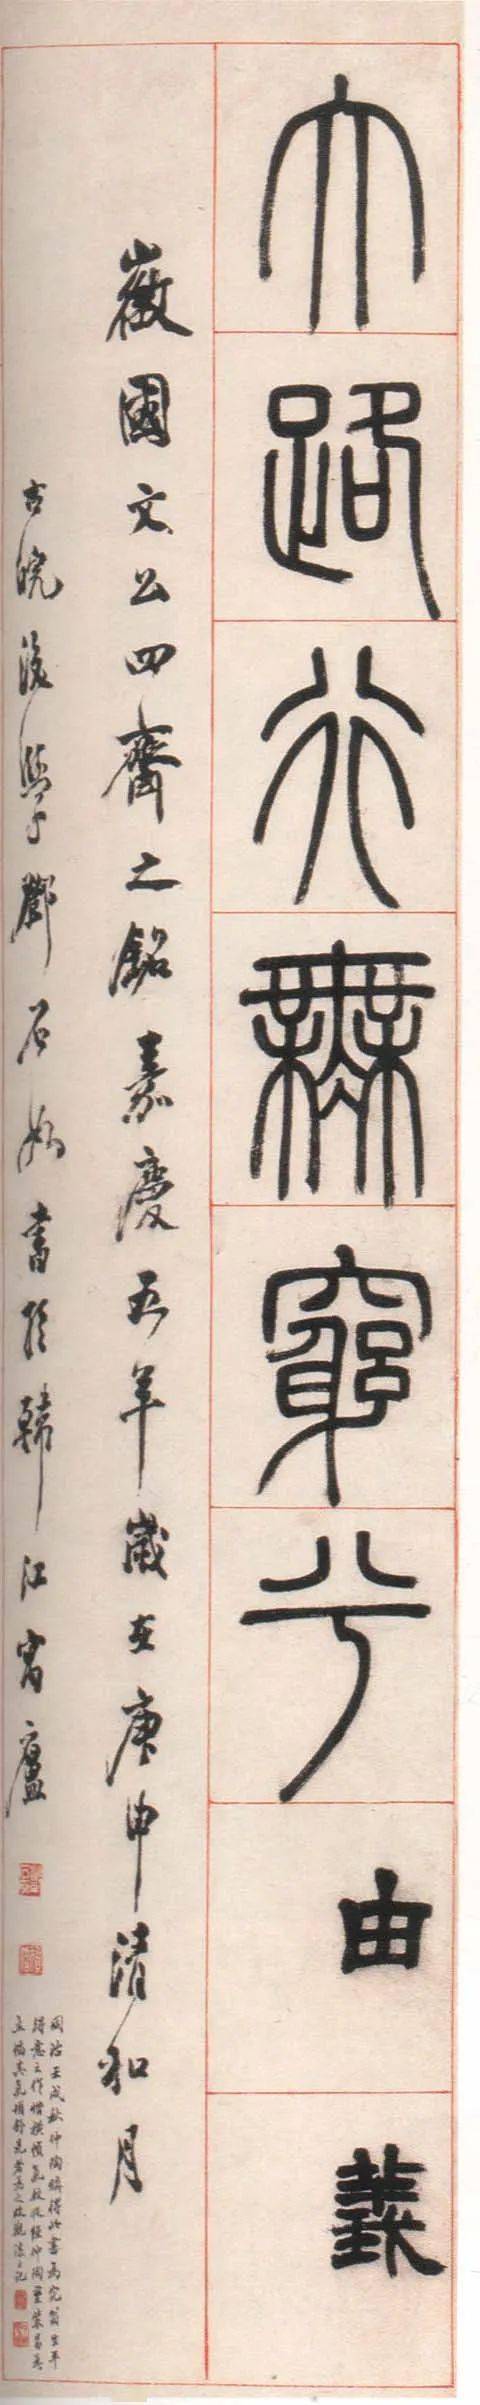 大路行無窮乎由義
徽國文公四齋之銘嘉慶五年歲在庚申清和月
古皖後學鄧石如書於韓江寓廬
同治壬戌秋仲陶購得此書為完翁生平
得意之作